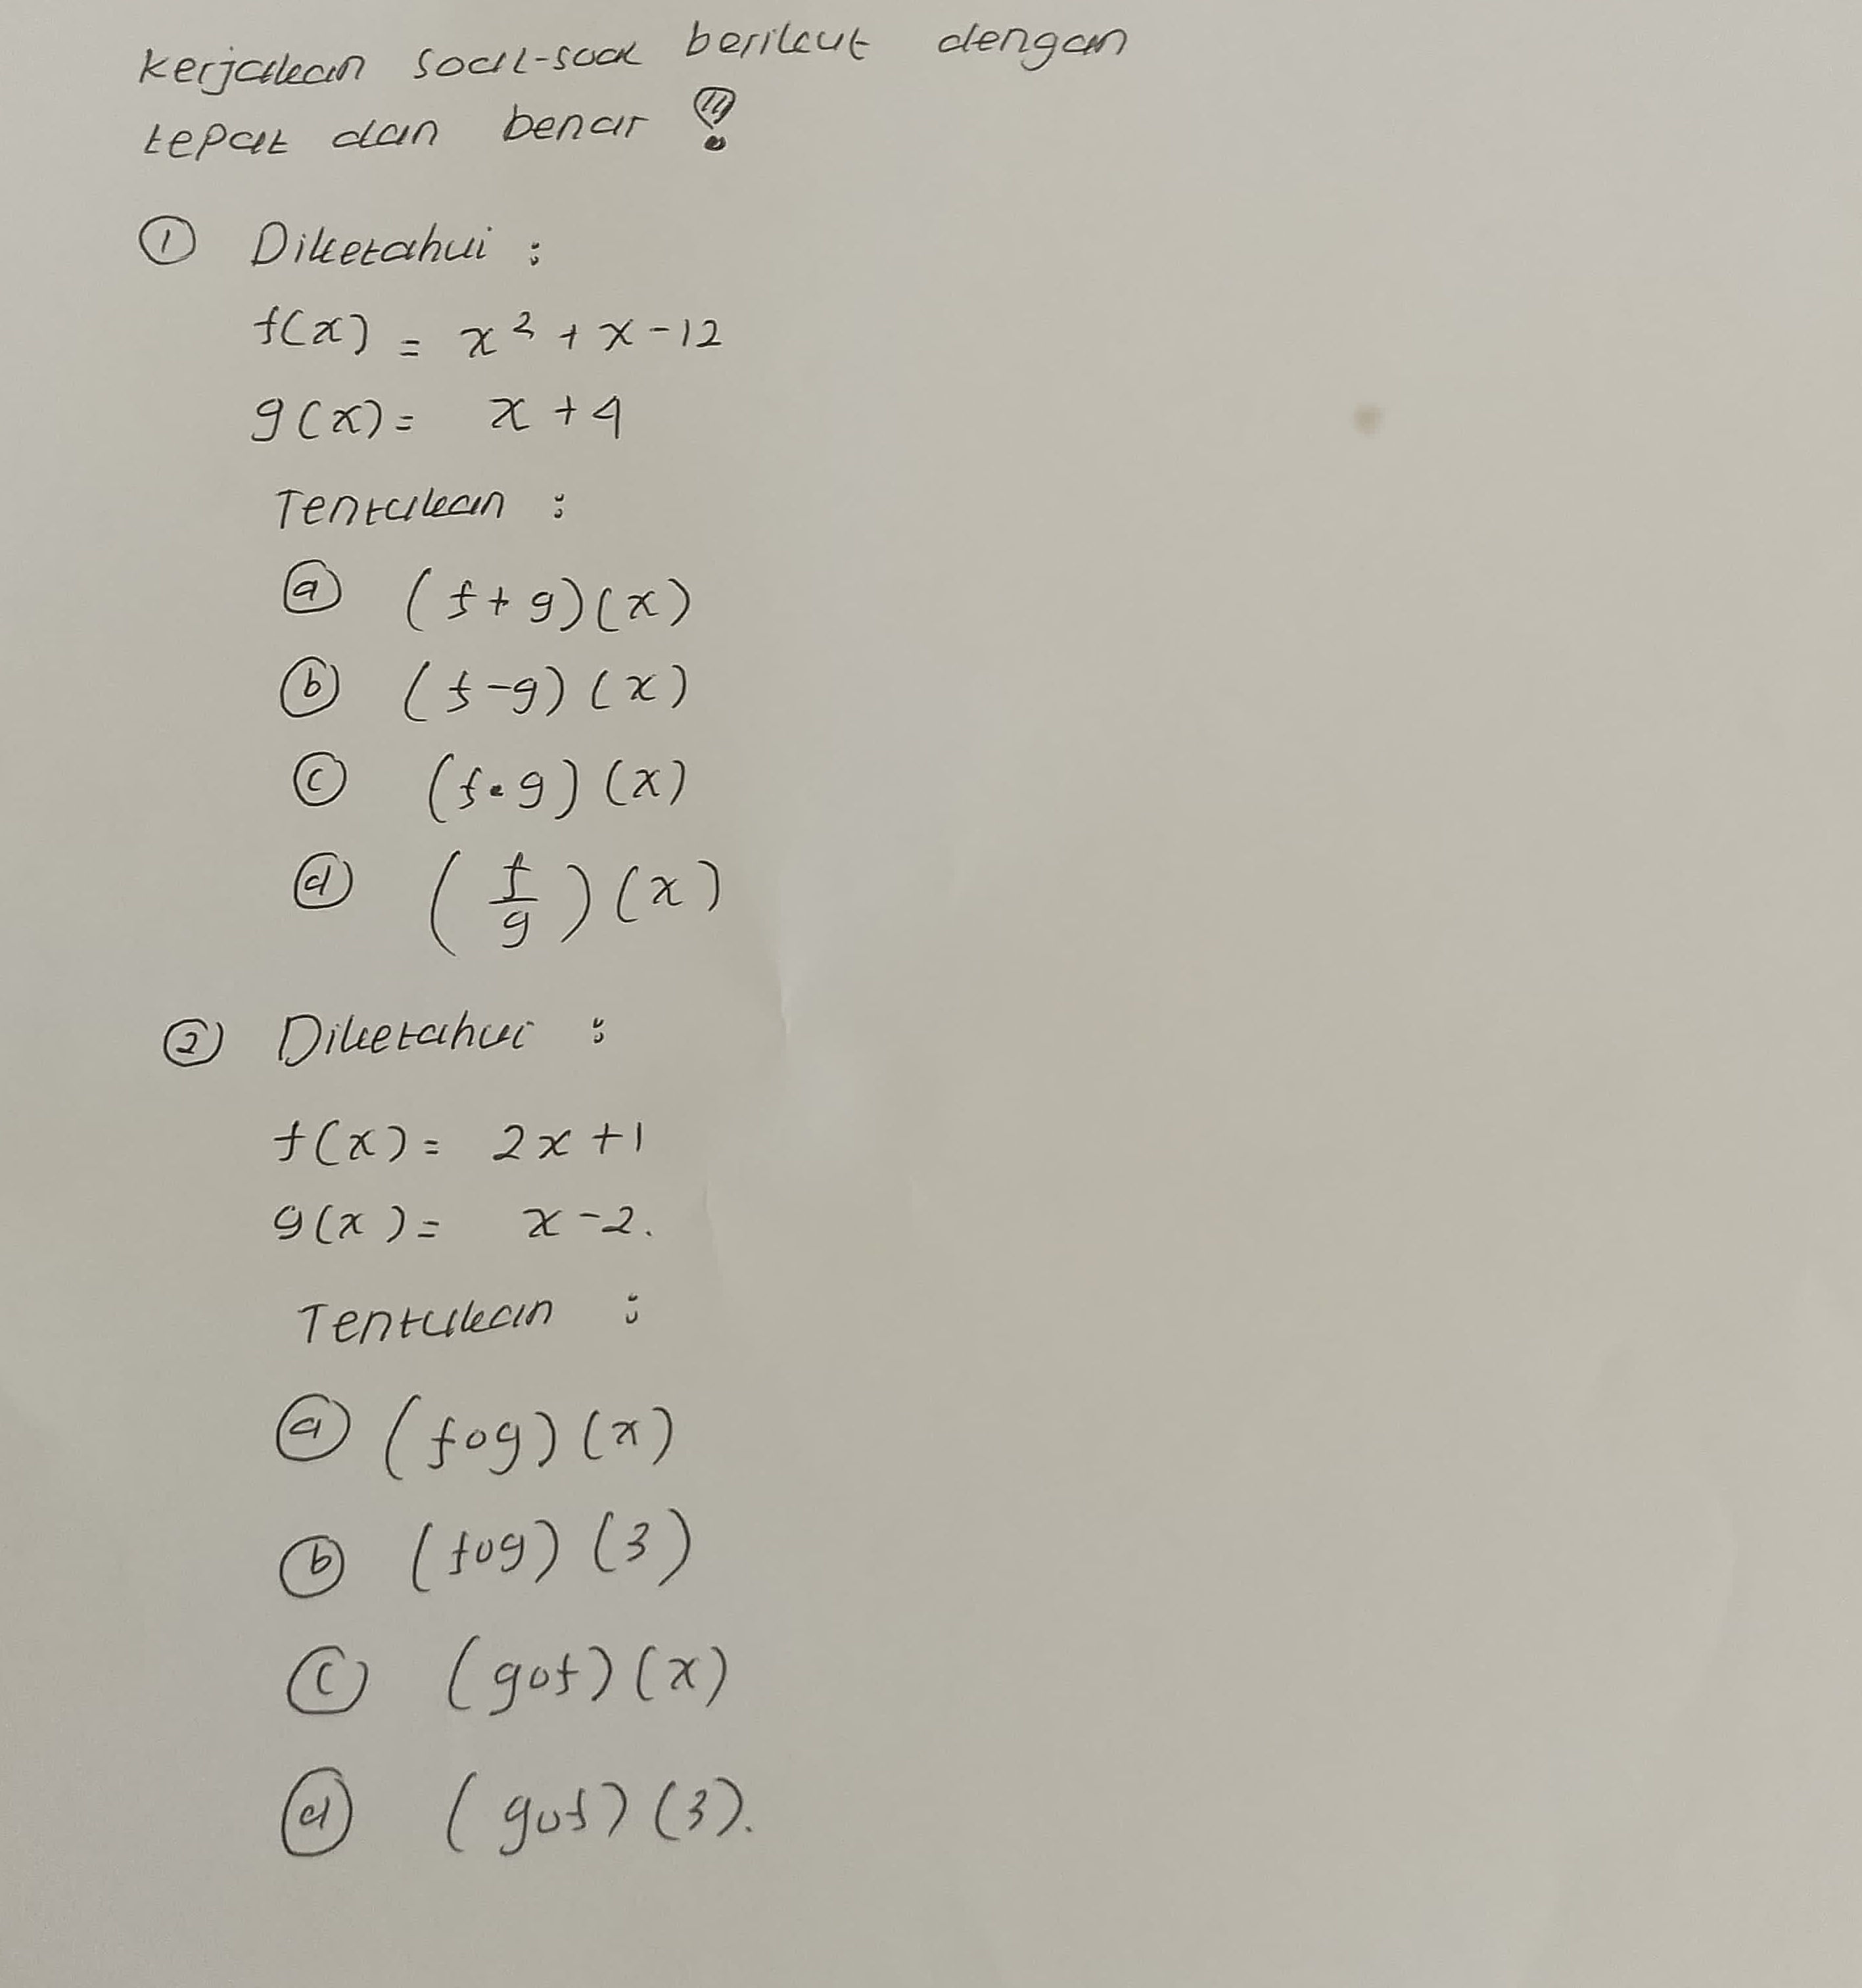 Kerjakan soal-soal berikut dengan
tepat dan benar !
① Diketahui :
f(x) = x² + x - 12
g(x) = x + 4
Tentukan :
ⓐ (f + g)(x)
ⓑ (f - g) (x)
ⓒ (f • g) (x)
ⓓ (f/g) (x)
② Diketahui :
f(x) = 2x + 1
g(x) = x - 2.
Tentukan :
ⓐ (fog) (x)
ⓑ (fog) (3)
ⓒ (gof) (x)
ⓓ (gof) (3).